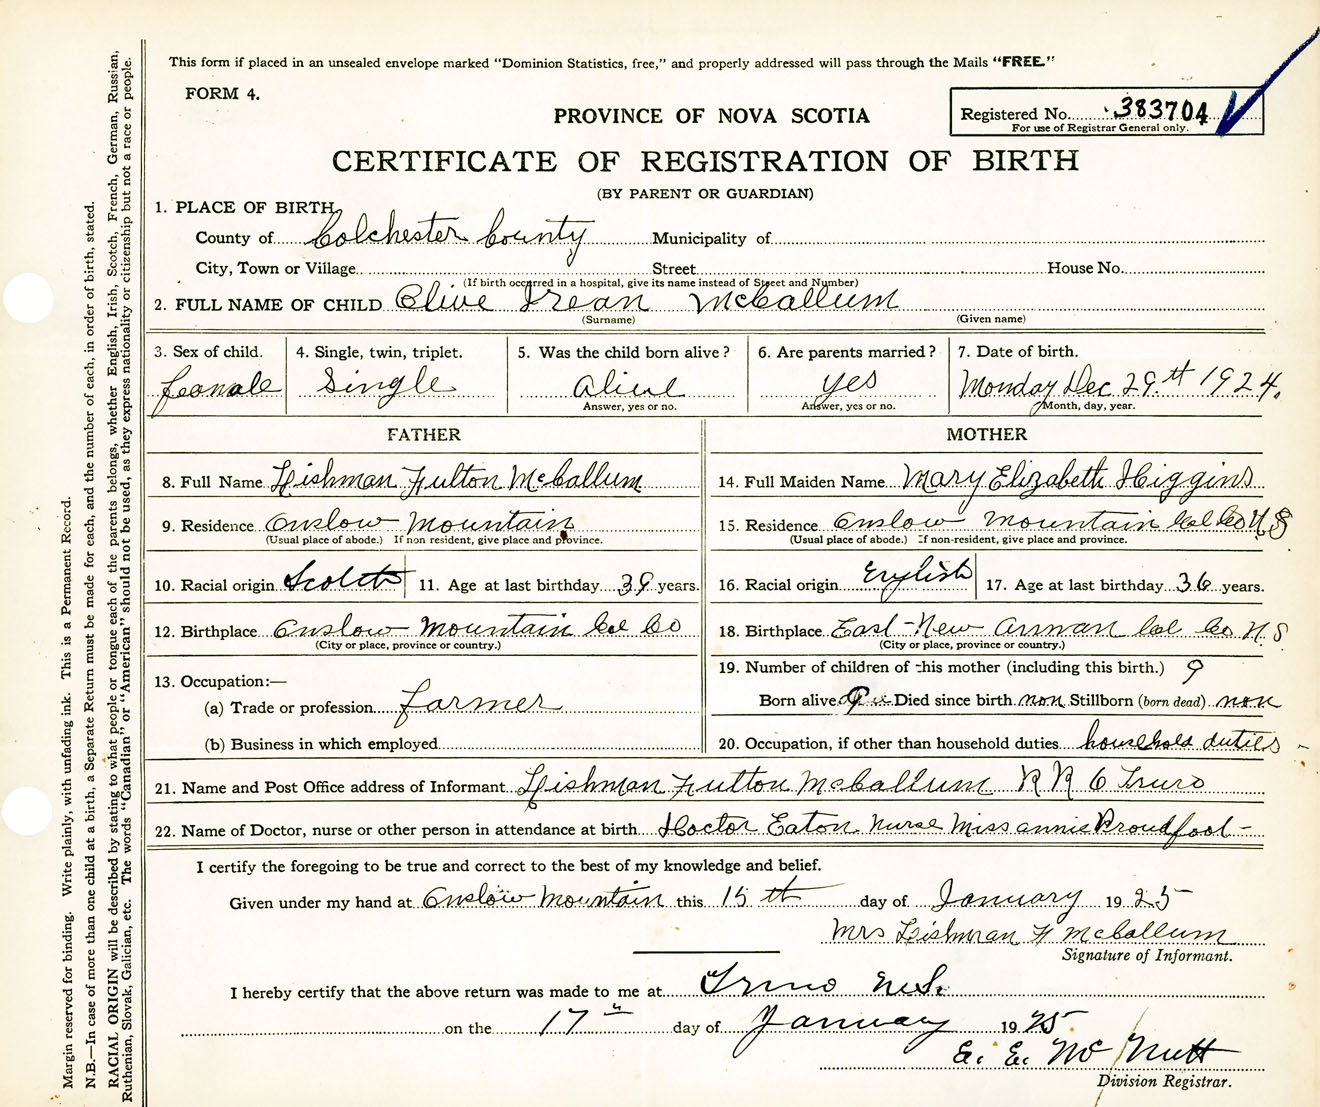 This form if placed in an unsealed envelope marked "Dominion Statistics, free," and properly addressed will pass through the Mails "FREE."
FORM 4.
PROVINCE OF NOVA SCOTIA
Registered No. 383704
For use of Registrar General only.
CERTIFICATE OF REGISTRATION OF BIRTH
(BY PARENT OR GUARDIAN)
1. PLACE OF BIRTH
County of Colchester County Municipality of
City, Town or Village Street House No.
(If birth occurred in a hospital, give its name instead of Street and Number)
2. FULL NAME OF CHILD Olive Irean McCallum
(Surname) (Given name)
3. Sex of child. 4. Single, twin, triplet. 5. Was the child born alive? 6. Are parents married? 7. Date of birth.
female Single alive yes Monday Dec 29th 1924.
Answer, yes or no. Answer, yes or no. Month, day, year.
FATHER MOTHER
8. Full Name Lishman Fulton McCallum 14. Full Maiden Name Mary Elizabeth Higgins
9. Residence Onslow Mountain 15. Residence Onslow Mountain Col Co N.S
(Usual place of abode.) If non resident, give place and province. (Usual place of abode.) If non-resident, give place and province.
10. Racial origin Scotch 11. Age at last birthday 39 years. 16. Racial origin English 17. Age at last birthday 36 years.
12. Birthplace Onslow Mountain Col Co 18. Birthplace East New Annan Col Co N.S
(City or place, province or country.) (City or place, province or country.)
13. Occupation:— 19. Number of children of this mother (including this birth.) 9
(a) Trade or profession farmer Born alive 9 Died since birth non Stillborn (born dead) non
(b) Business in which employed 20. Occupation, if other than household duties household duties
21. Name and Post Office address of Informant Lishman Fulton McCallum R R 6 Truro
22. Name of Doctor, nurse or other person in attendance at birth Doctor Eaton Nurse Miss annie Proudfoot -
I certify the foregoing to be true and correct to the best of my knowledge and belief.
Given under my hand at Onslow Mountain this 15 th day of January 1925
Mrs Lishman F McCallum
Signature of Informant.
I hereby certify that the above return was made to me at Truro N.S.
on the 17th day of January 1925
E. E. McNutt
Division Registrar.
Margin reserved for binding. Write plainly, with unfading ink. This is a Permanent Record.
N.B.—In case of more than one child at a birth, a Separate Return must be made for each, and the number of each, in order of birth, stated.
RACIAL ORIGIN will be described by stating to what people or tongue each of the parents belongs, whether English, Irish, Scotch, French, German, Russian,
Ruthenian, Slovak, Galician, etc. The words "Canadian" or "American" should not be used, as they express nationality or citizenship but not a race or people.